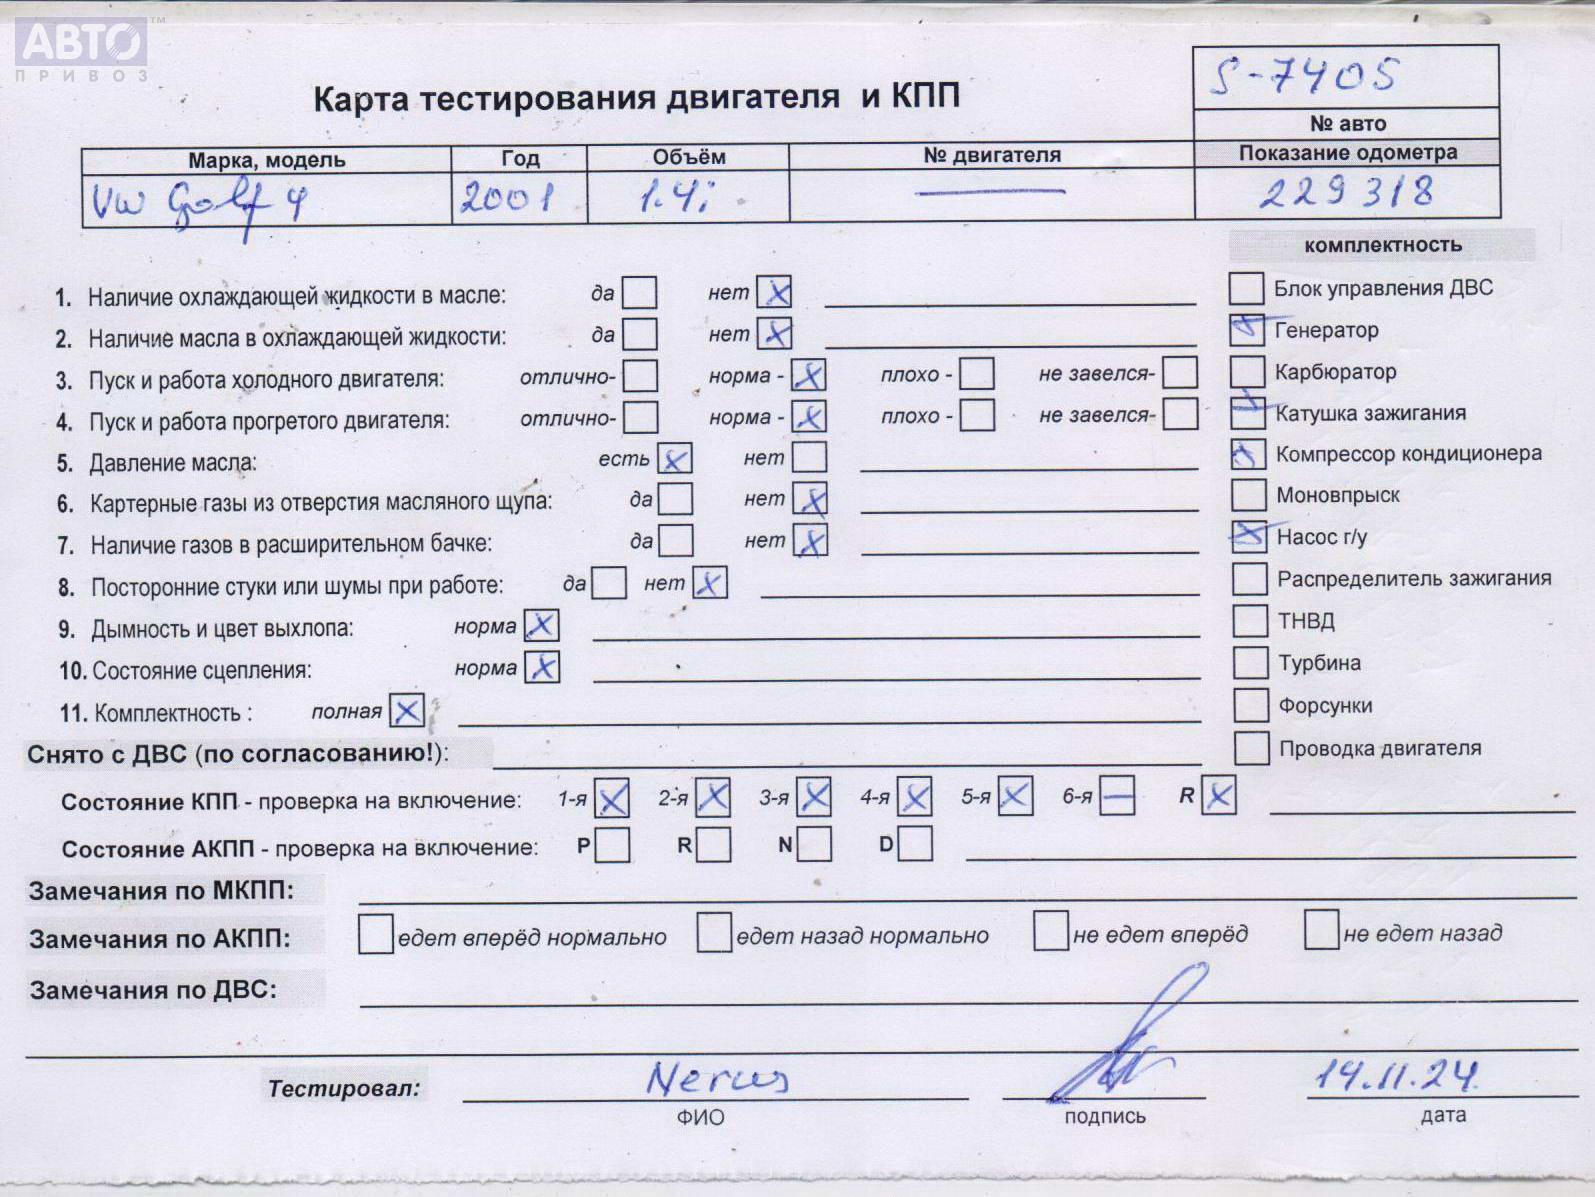 АВТО™
ПРИВОЗ
S-7405
Карта тестирования двигателя и КПП
№ авто
Марка, модель Год Объём № двигателя Показание одометра
VW Golf 4 2001 1.4i — 229318
комплектность
1. Наличие охлаждающей жидкости в масле: да нет X
Блок управления ДВС
2. Наличие масла в охлаждающей жидкости: да нет X
Генератор
3. Пуск и работа холодного двигателя: отлично- норма - X плохо - не завелся-
Карбюратор
4. Пуск и работа прогретого двигателя: отлично- норма - X плохо - не завелся-
Катушка зажигания
5. Давление масла: есть X нет
Компрессор кондиционера
6. Картерные газы из отверстия масляного щупа: да нет X
Моновпрыск
7. Наличие газов в расширительном бачке: да нет X
Насос г/у
8. Посторонние стуки или шумы при работе: да нет X
Распределитель зажигания
9. Дымность и цвет выхлопа: норма X
ТНВД
10. Состояние сцепления: норма X
Турбина
11. Комплектность : полная X
Форсунки
Снято с ДВС (по согласованию!):
Проводка двигателя
Состояние КПП - проверка на включение: 1-я X 2-я X 3-я X 4-я X 5-я X 6-я — R X
Состояние АКПП - проверка на включение: P R N D
Замечания по МКПП:
Замечания по АКПП: едет вперёд нормально едет назад нормально не едет вперёд не едет назад
Замечания по ДВС:
Тестировал: Nerus 14.11.24
ФИО подпись дата